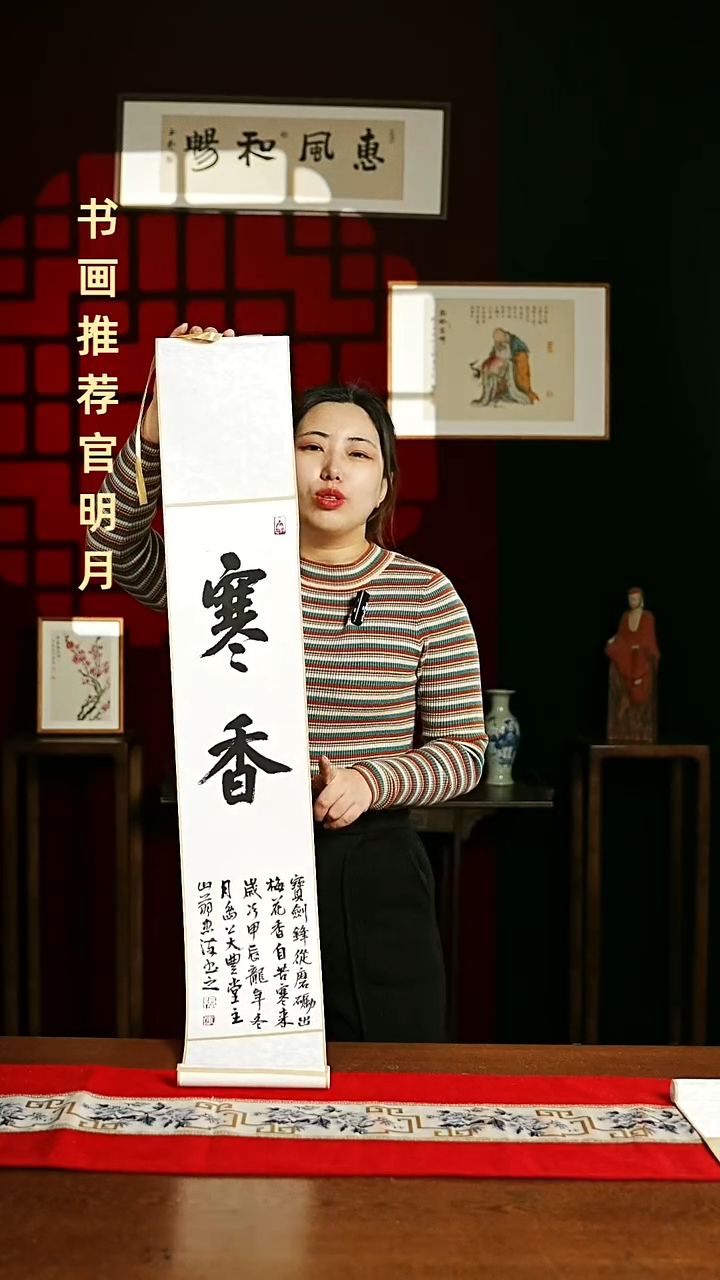 惠風和暢
书画推荐官明月
寒香
寶劍鋒從磨礪出
梅花香自苦寒来
歲次甲辰龍年冬
月
大豐堂主
山翁
書之